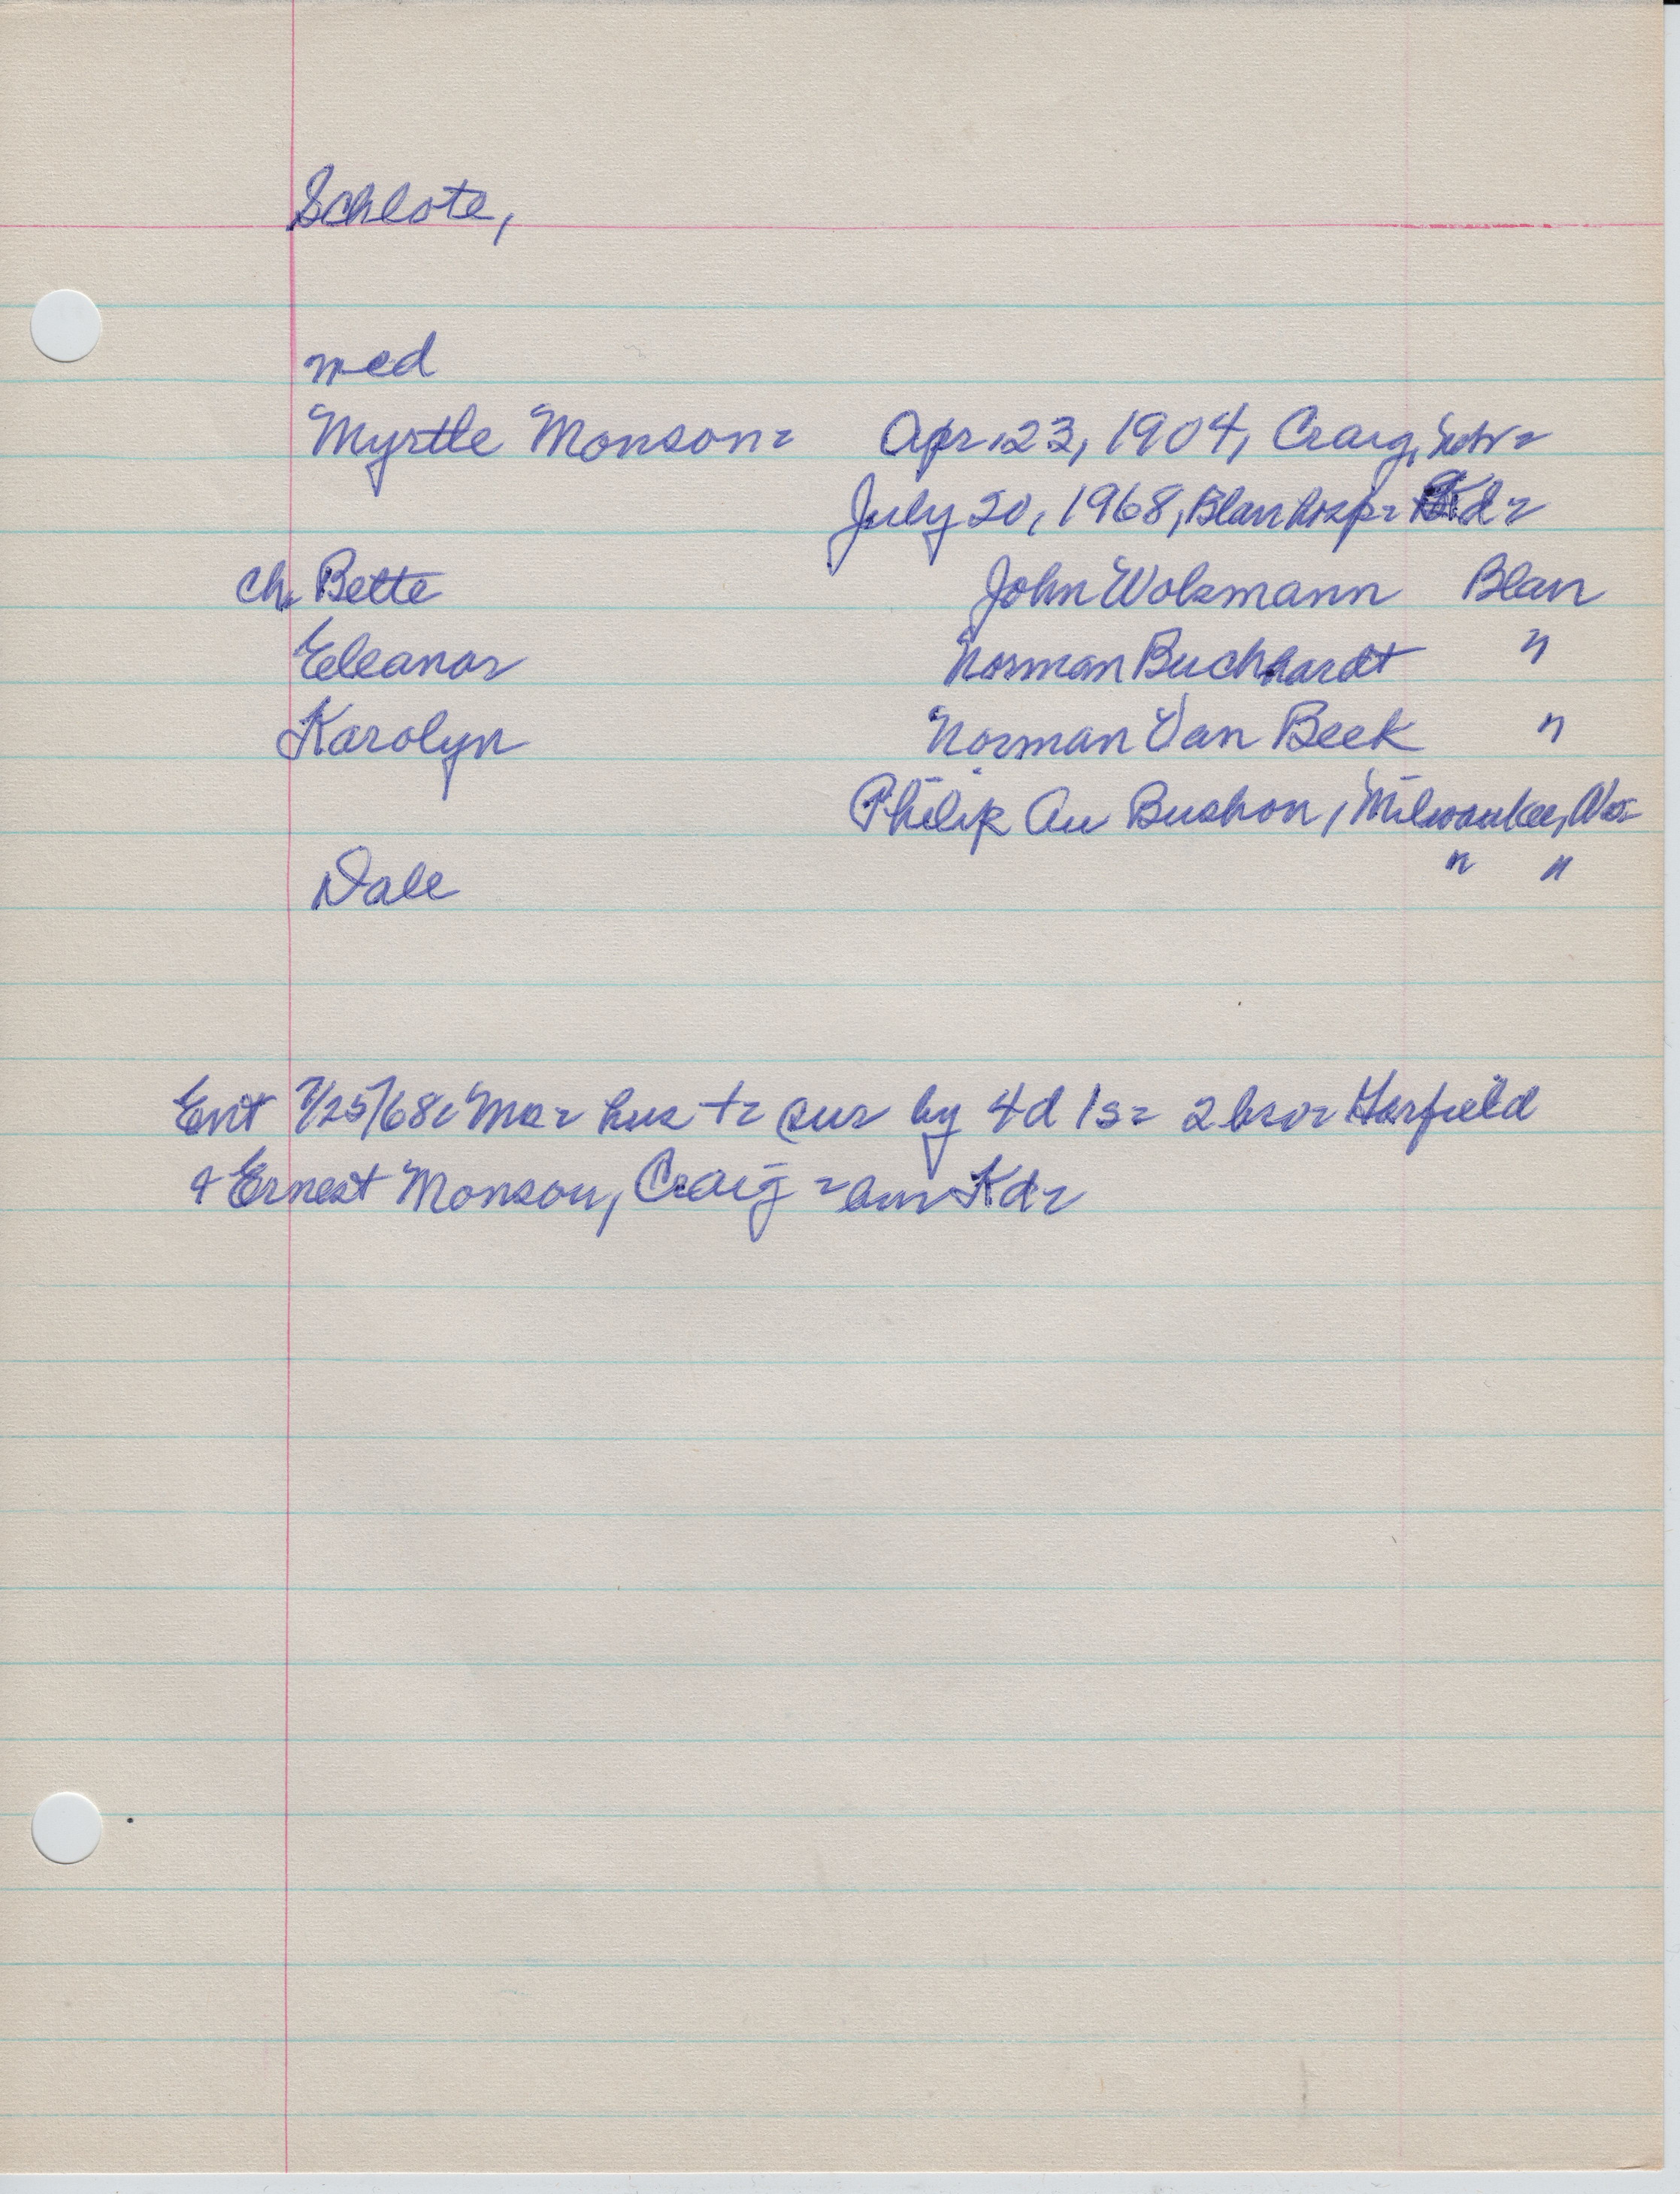 Schlote,
med
Myrtle Monson= Apr. 23, 1904, Craig, Nebr=
July 20, 1968, Blair hosp= Kd=
ch. Bette John Wolsmann Blair
Eleanor Norman Buchhardt "
Karolyn Norman Van Beek "
Philip Au Bushon, Milwaukee, Wis=
Dale " "
Ent 7/25/68= hus += sur by 4d 1s= 2 bro= Garfield
& Ernest Monson, Craig = bur Kd=